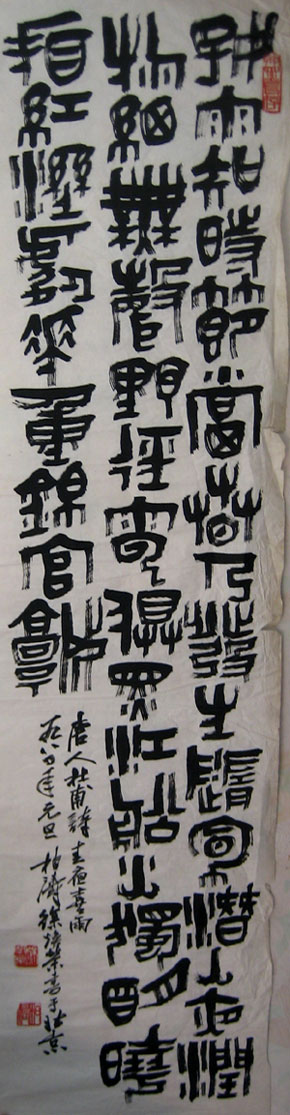 好雨知時節當春乃發生隨風潛入夜潤
物細無聲野徑雲俱黑江船火獨明曉
看紅濕處花重錦官城
唐人杜甫詩春夜喜雨
年元旦柏濤徐書于北京